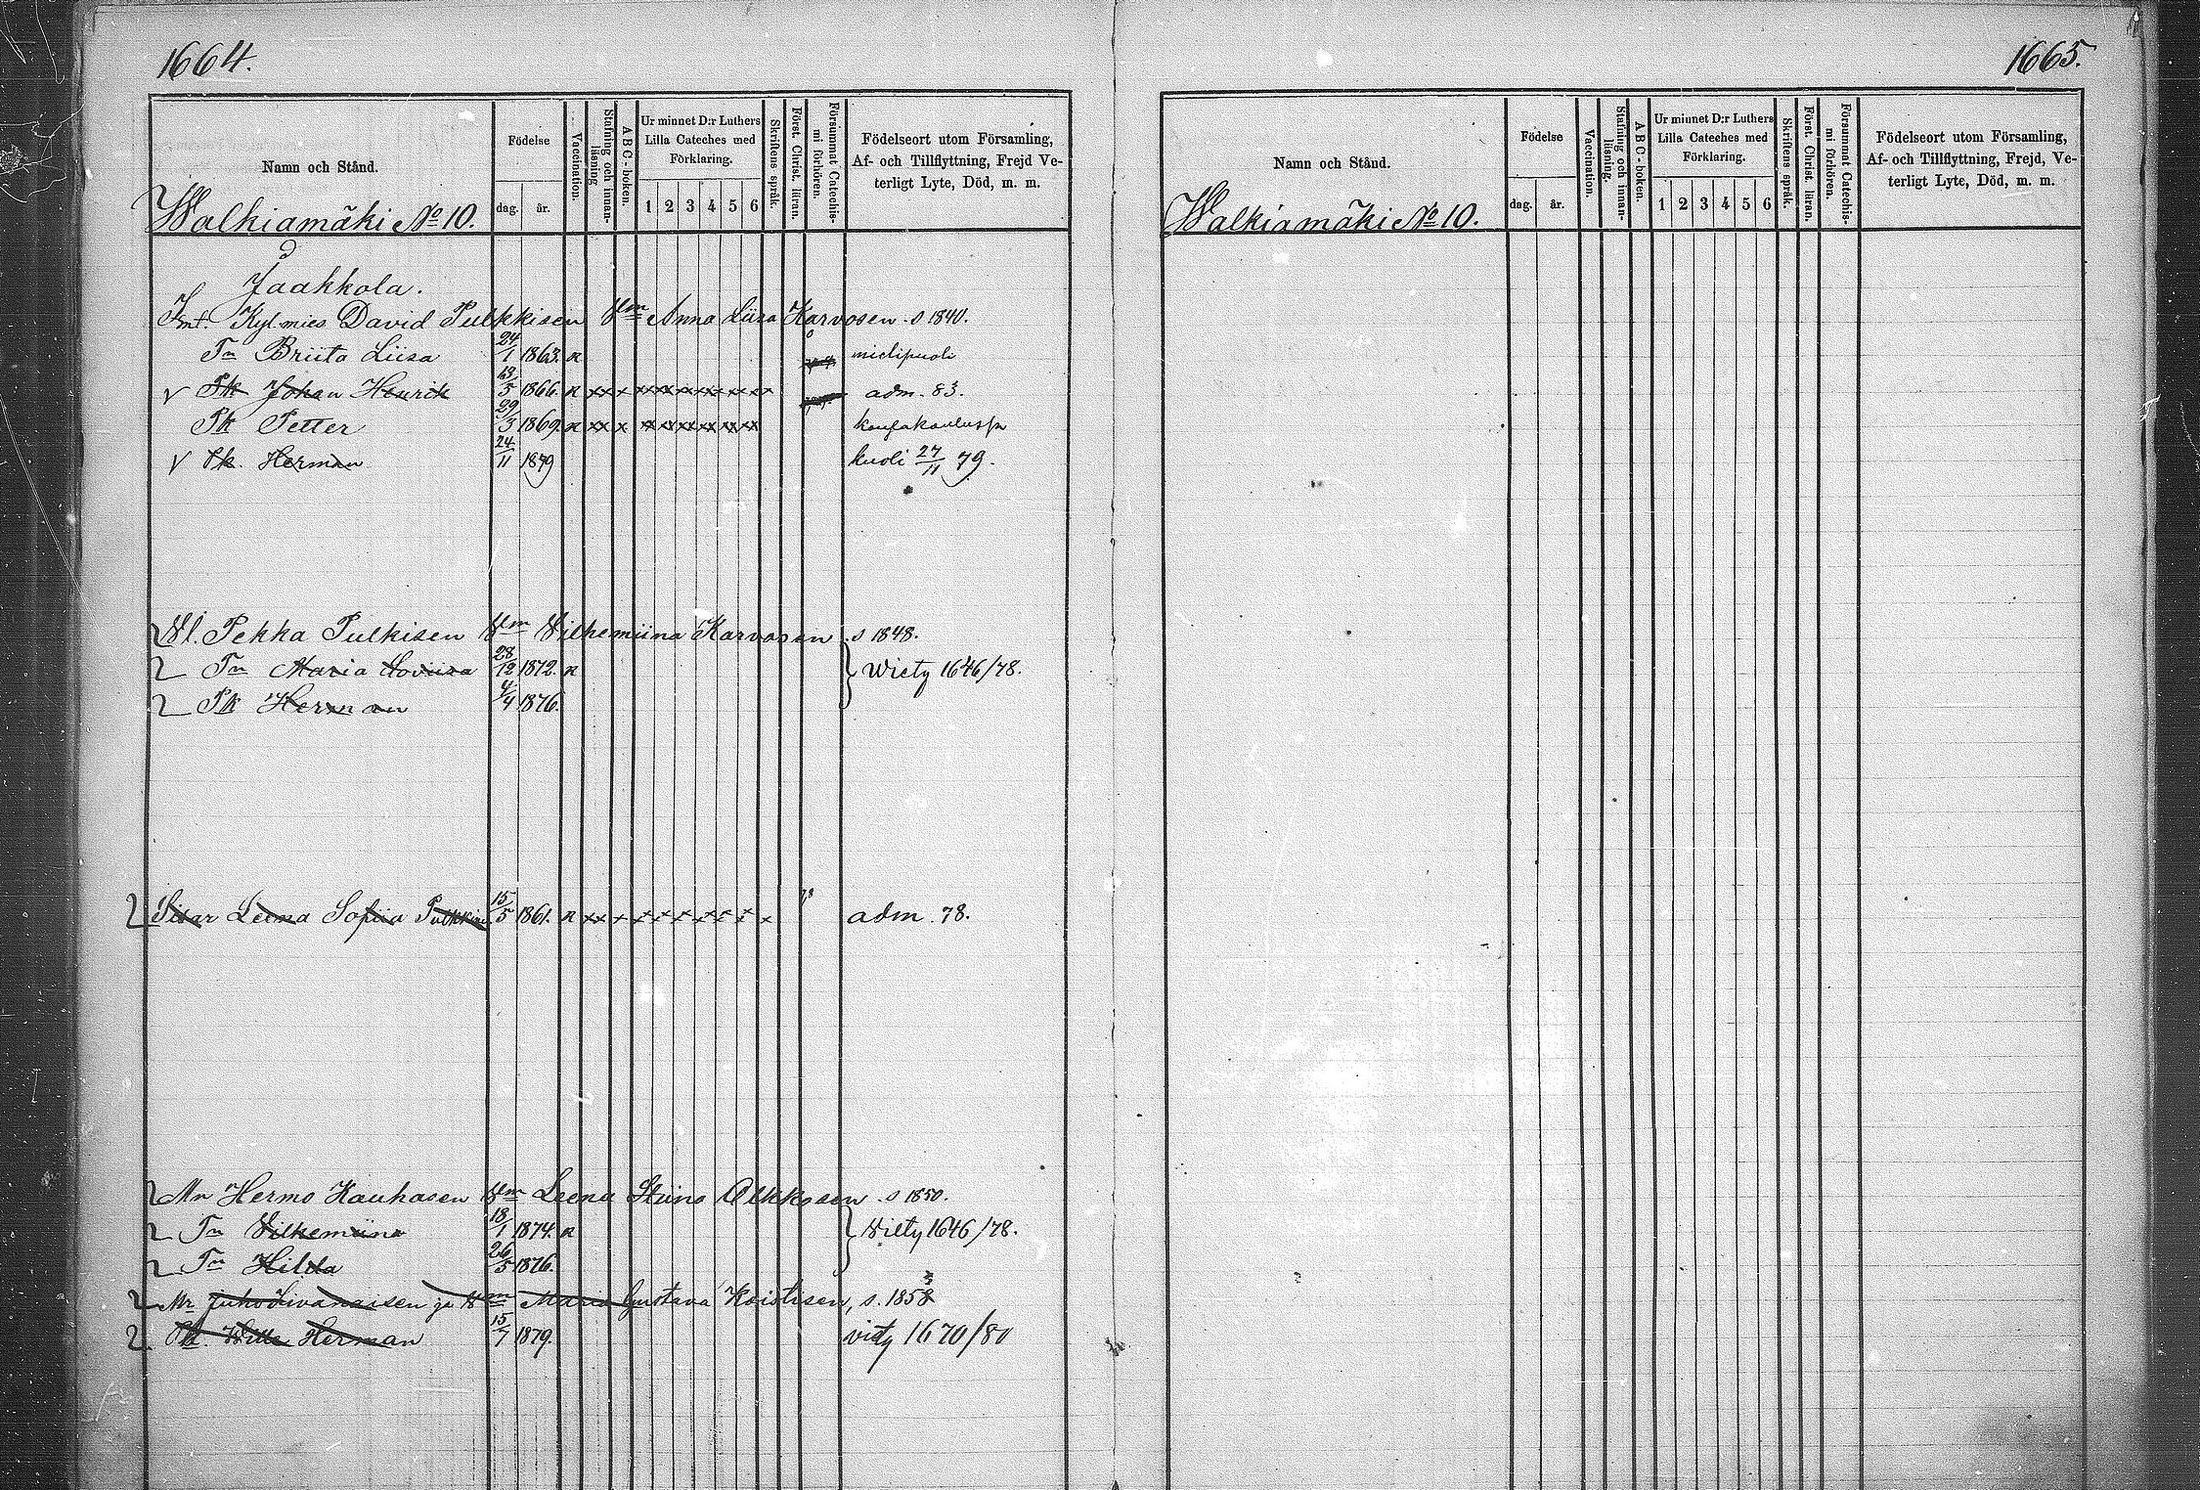 1664.
Namn och Stånd.
Födelse
dag. år.
Vaccination.
Stafning och innan-
läsning
ABC-boken.
Ur minnet D:r Luthers
Lilla Cateches med
Förklaring.
1 2 3 4 5 6
Skriftens språk.
Först. Christ. läran.
Försummat Catechis-
mi förhören.
Födelseort utom Församling,
Af- och Tillflyttning, Frejd Ve-
terligt Lyte, Död, m. m.
Walkiamäki No 10.
Jaakkola.
Kyl. mies David Pulkkisen Vm Anna Liisa Karvosen. s 1840.
Tr Briita Liisa 24/1 1863. n mielipuoli
v Pk Johan Henrik 13/5 1866. n xx x xx xx x xx x x x x adm. 83.
Pk Petter 29/3 1869. n xx x xx xx xx xx xx xx
v Pk. Herman 24/11 1879 kuoli 27/11 79.
Vl. Pekka Pulkisen Vm Vilhemiina Karvosen s 1848.
Tr Maria Loviisa 28/12 1872. n Wiety 1646/78.
Pk Herman 4/4 1876.
Sisar Leena Sofiia Pulkkinen 15/5 1861. n xx x x x x x x x x adm. 78.
Mr Hermo Kauhasen Vm Leena Stiina Olkkosen s 1850.
Tr Vilhemiina 18/1 1874. n Viety 1646/78.
Tr Hilda 26/5 1876.
Mr Juho Sivanaisen ja Vm Maria Gustava Koistisen, s. 1858
Pk. Wille Herman 15/7 1879. viety 1670/80
1665.
Namn och Stånd.
Födelse
dag. år.
Vaccination.
Stafning och innan-
läsning.
ABC-boken.
Ur minnet D:r Luthers
Lilla Cateches med
Förklaring.
1 2 3 4 5 6
Skriftens språk.
Först. Christ. läran.
Försummat Catechis-
mi förhören.
Födelseort utom Församling,
Af- och Tillflyttning, Frejd, Ve-
terligt Lyte, Död, m. m.
Walkiamäki No 10.